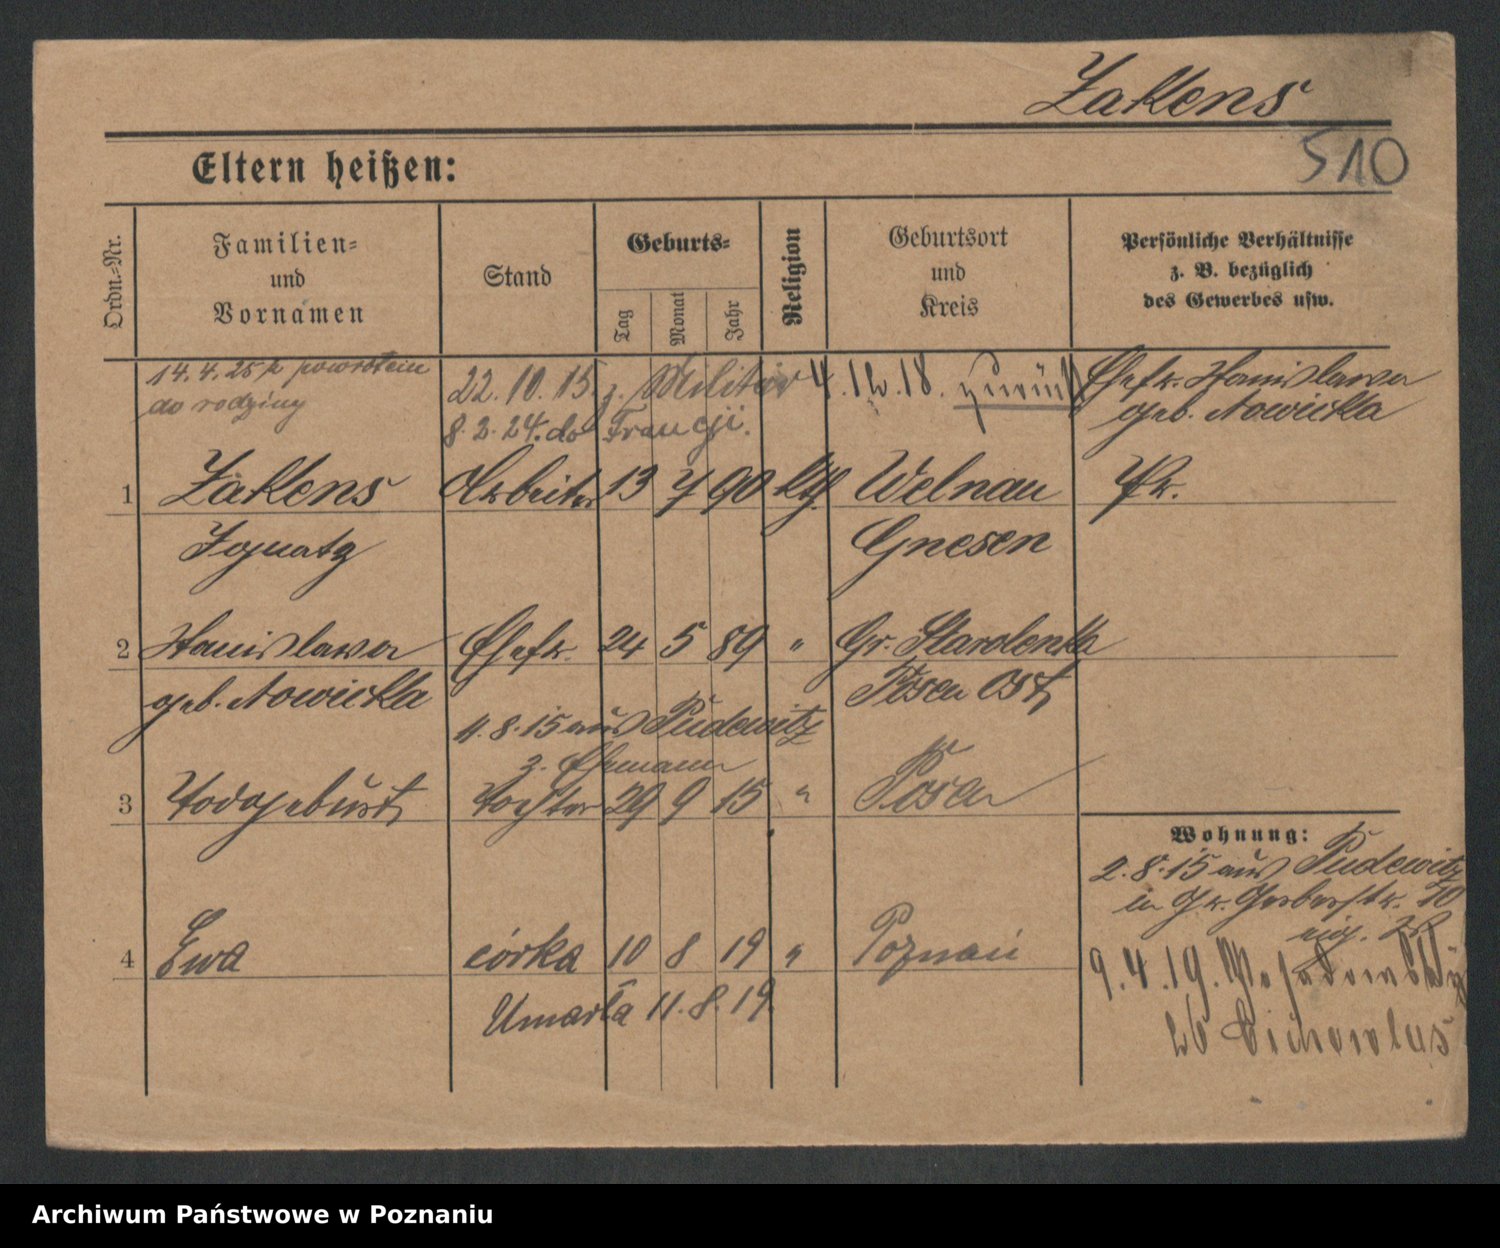 Zakens
510
Eltern heißen:
Ordn.-Nr.
Familien-
und
Vornamen
Stand
Geburts-
Tag
Monat
Jahr
Religion
Geburtsort
und
Kreis
Persönliche Verhältnisse
z. B. bezüglich
des Gewerbes usw.
14.4.25 z powrotem
do rodziny
22.10.15. z. Militär 4.12.18. zurück
8.2.24. do Francji.
Ehefr. Stanislawa
geb. Nowicka
1 Zakens Arbeiter 13 7 90 kth. Welnau Pr.
Ignatz Gnesen
2 Stanislawa Ehefr. 24 5 89 " Gr. Starolenka
geb. Nowicka Posen Ost
11.8.15 aus Pudewitz
z. Ehemann
3 Todgeburt Tochter 29 9 15 " Posen
Wohnung:
2.8.15 aus Pudewitz
in Gr. Gerberstr. 40
4 Ewa córka 10 8 19 " Poznań
9.4.19.
Umarła 11.8.19.
26 Cichowlas